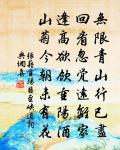 無限青山行已盡
回看忽覺遠離家
逢高欲飲重陽酒
山菊今朝未有花
張籍重陽日至峽道